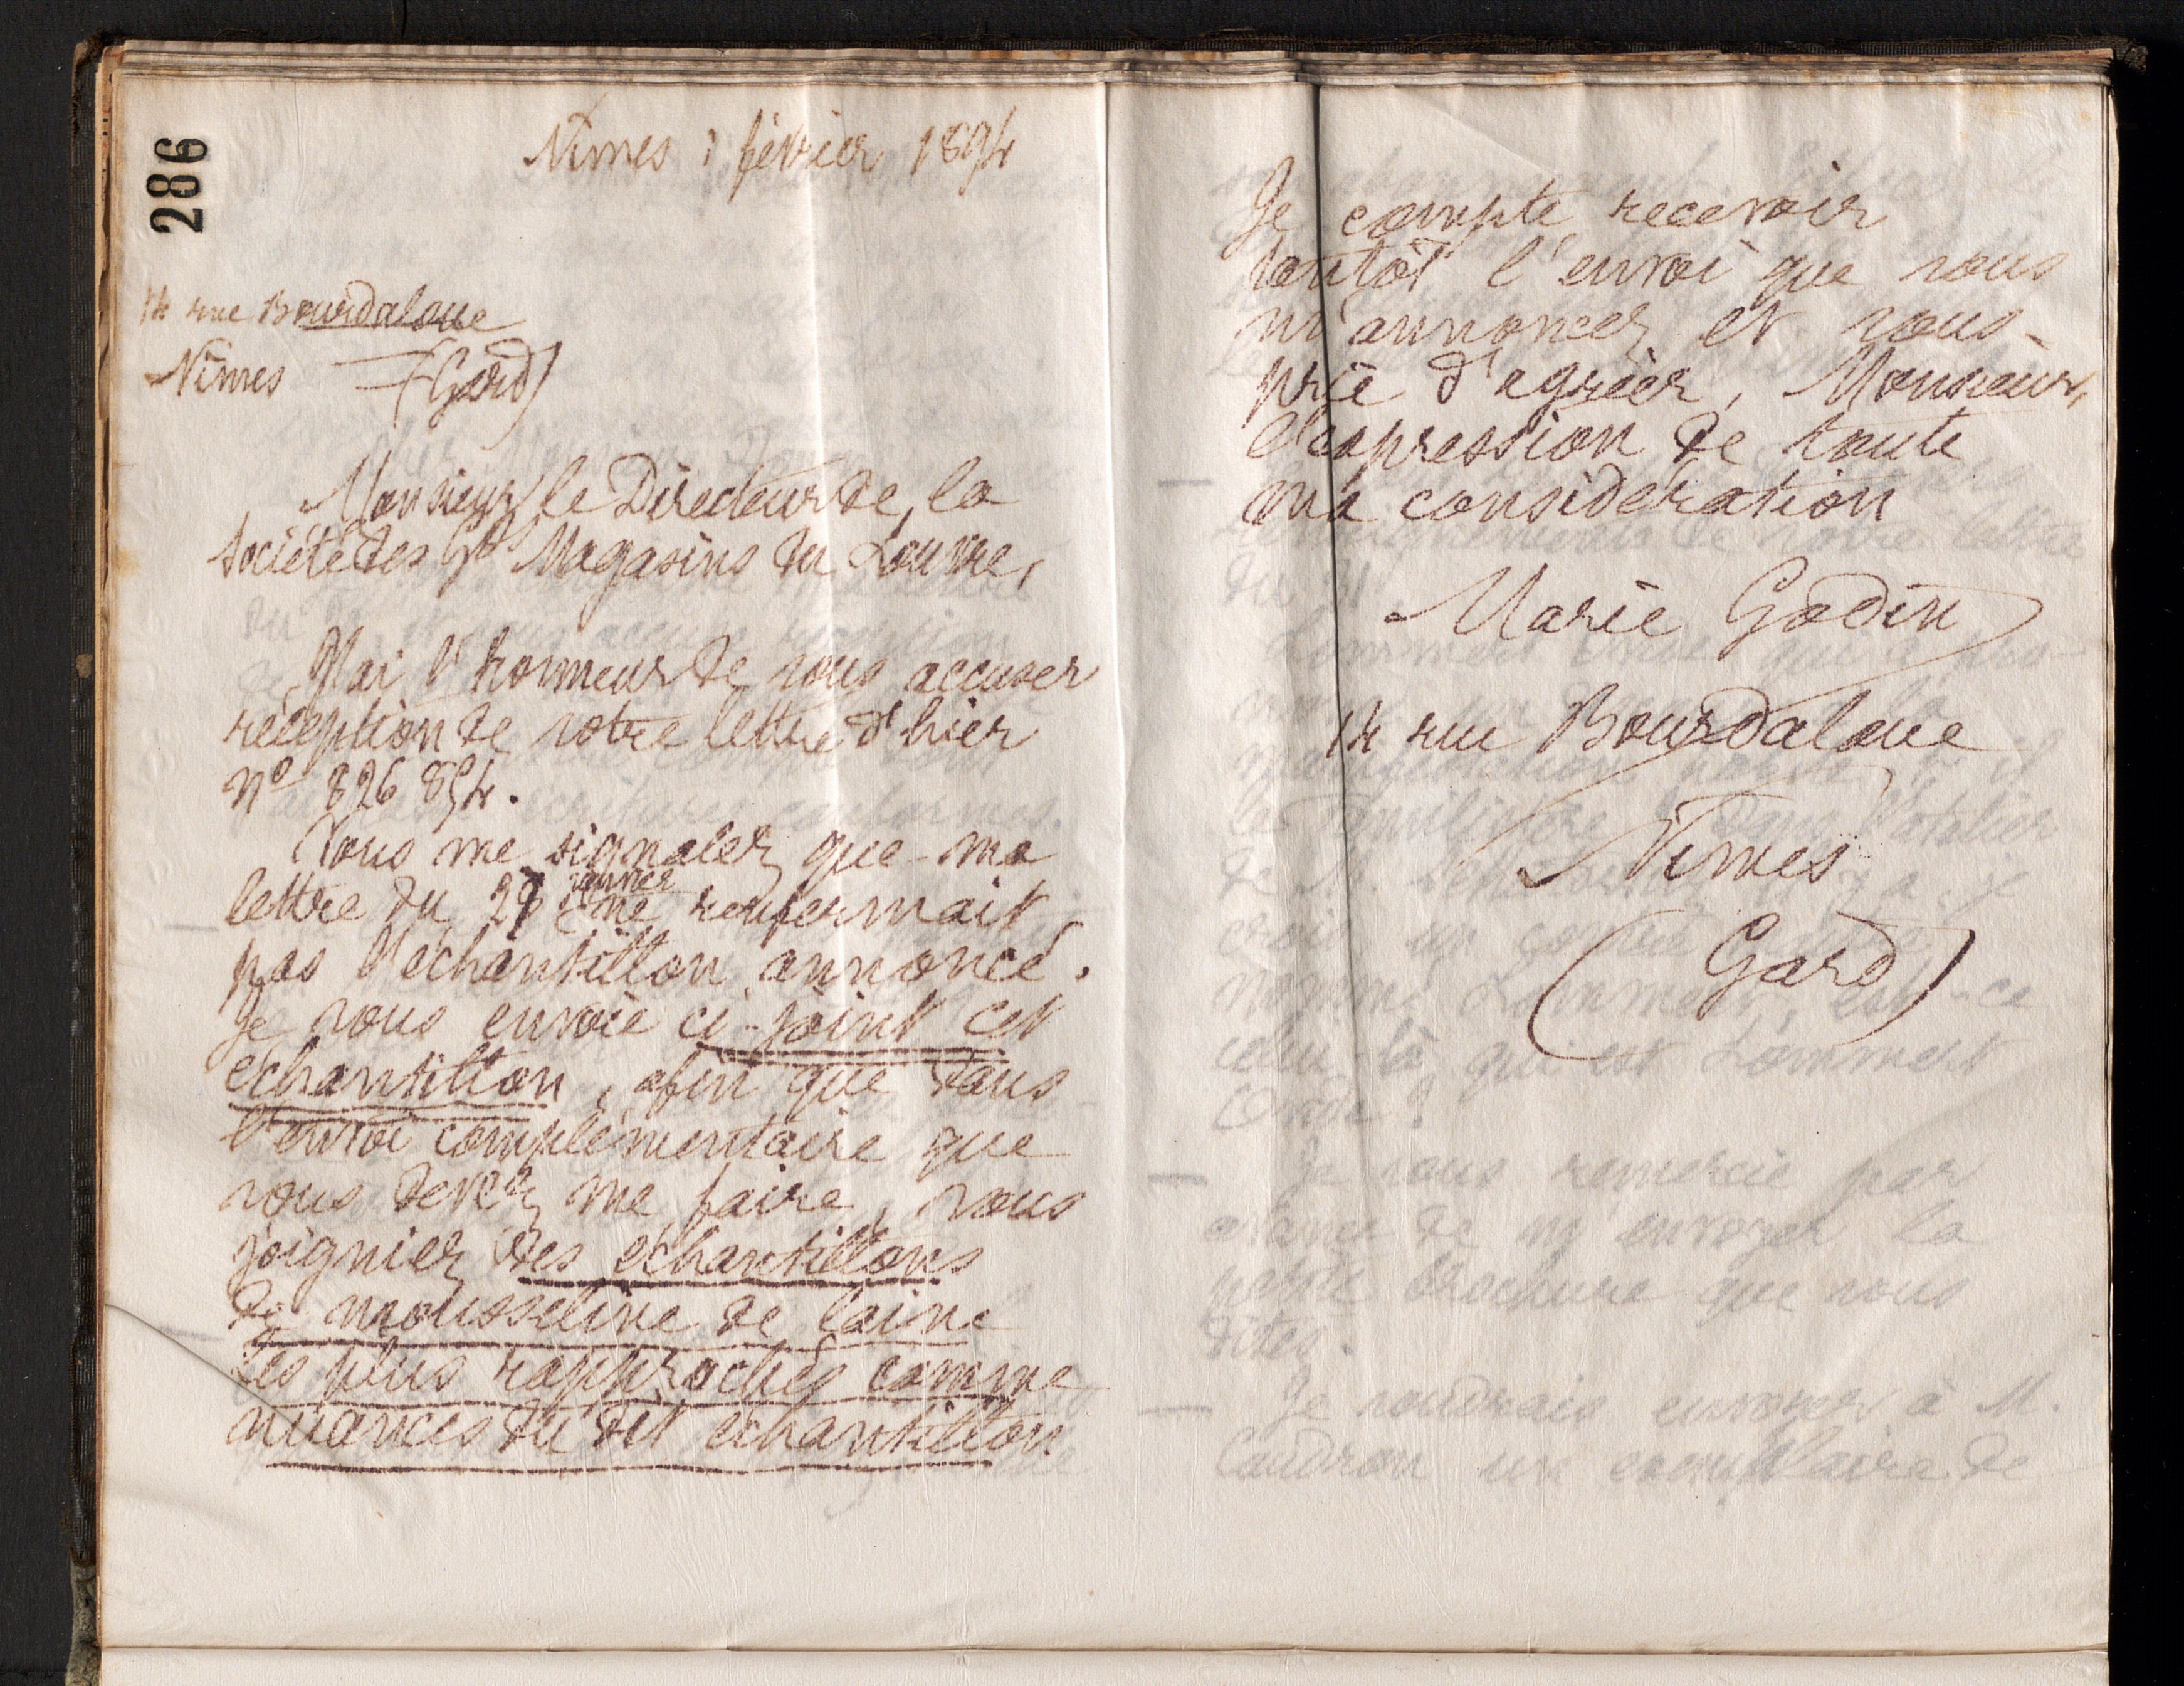 286
Nîmes 1 février 1894
14 rue Bourdaloue
Nîmes (Gard)
Monsieur le Directeur de la
Société des Gds Magasins du Louvre,
J'ai l'honneur de vous accuser
réception de votre lettre d'hier
No 826 894.
Vous me signalez que ma
lettre du janvier ne renfermait
pas l'échantillon annoncé.
Je vous envoie ci-joint cet
échantillon, afin que dans
l'envoi complémentaire que
vous devez me faire, vous
joigniez des échantillons
de mousseline de laine
les plus rapprochés comme
nuances du dit échantillon
Je compte recevoir
tantôt l'envoi que vous
m'annoncez et vous
prie d'agréer, Monsieur,
l'expression de toute
ma considération
Marie Godin
14 rue Bourdaloue
Nîmes
(Gard)
Je vous remercie par
avance de m'envoyer la
petite brochure que vous
dites.
Je voudrais envoyer à M.
Caudron un exemplaire de